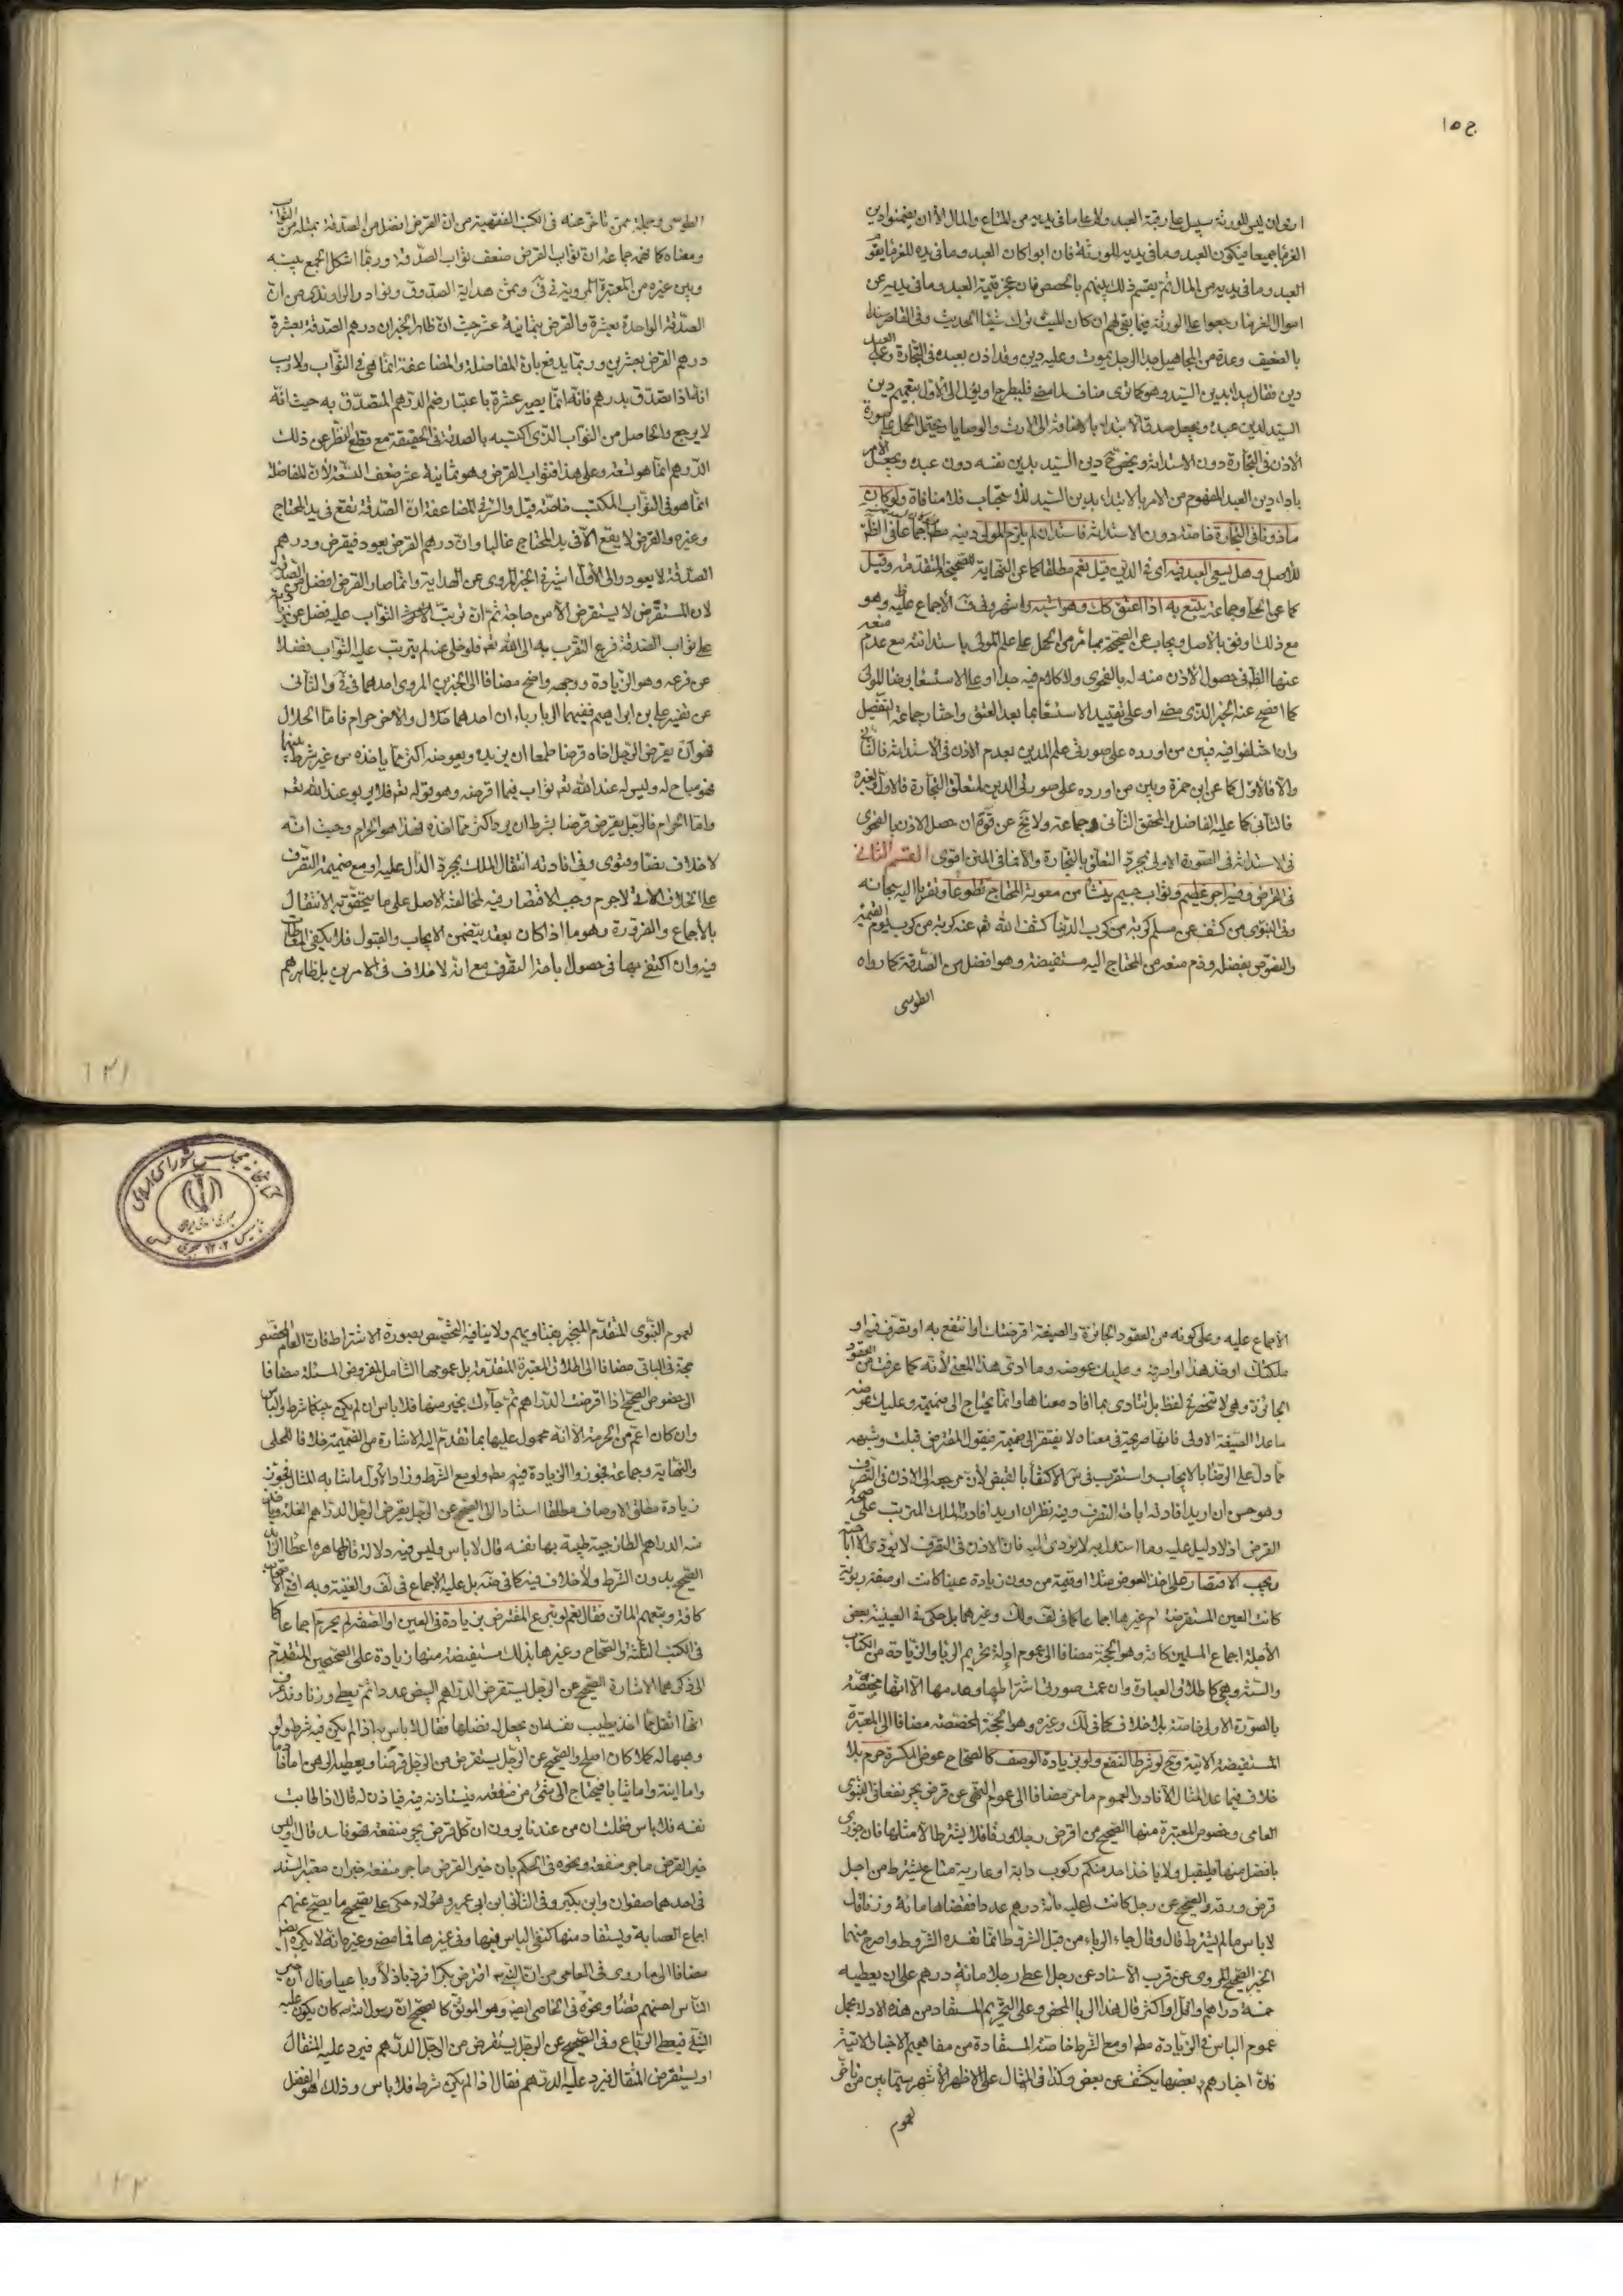 ج ١٥
اروان ليس للورثة سبيل على رقبة العبد ولا على ما في يديه من المتاع والمال الا ان يضمنوا دين
الغرماء جميعا فيكون العبد وما في يديه للورثة فان ابوا كان العبد وما في يده للغرماء يقوم
العبد وما في يديه من المال ثم يقسم ذلك بينهم بالحصص فان عجز قيمة العبد وما في يديه عن
اموال الغرماء رجعوا على الورثة فيما بقي لهم ان كان الميت ترك شيئا الحديث وفي القاصر سندا
بالضعيف وعدة من المجاهيل جدا الرجل يموت وعليه دين وقد اذن بعبده في التجارة وعلى العبد
دين فقال يبدا بدين السيد وهو كما ترى مناف لما مضى فليطرح او يؤل الى الاول بتعميم دين
السيد لدين عبده ويجعل صدق الابتداء بالاضافة الى الارث والوصايا ويحتمل الحمل على صورة
الاذن في التجارة دون الاستدانة ويخص دين السيد بدين نفسه دون عبده ويجعل الامر
باداء دين العبد المفهوم من الامر بالابتداء بدين السيد للاستحباب فلا منافاة ولو كان
ماذونا في التجارة خاصة دون الاستدانة فاستدان لم يلزم المولى دينه اجماعا على الظ
للاصل وهل يسعى العبد فيه اى في الدين قيل نعم مطلقا كما عن النهاية للصحيحة المتقدمة وقيل
كما عن الحلى وجماعة يتبع به اذا اعتق كك وهو اشبه واشهر وفي ف الاجماع عليه وهو
مع ذلك اوفق بالاصل ويجاب عن الصحيحة بما مر من الحمل على علم المولى باستدانته مع عدم منعه
عنها الظ في حصول الاذن منه له بالفحوى ولا كلام فيه جدا او على الاستسعاء برضا المولى
كما افصح عنه الخبر الذي مضى او على تقييد الاستسعاء بما بعد العتق واختار جماعة التفصيل
وان اختلفوا فيه فبين من اورده على صورتى علم المدين بعدم الاذن في الاستدانة فالثاني
والا فالاول كما عن ابن حمزة وبين من اورده على صورتى الدين لمتعلق التجارة فالاول ولغيره
فالثاني كما عليه الفاضل والمحقق الثاني وجماعة ولا يخ عن قوة ان حصل الاذن بالفحوى
في الاستدانة في الصورة الاولى بمجرد التعلق بالتجارة والا فما في المتن اقوى القسم الثاني
في القرض وفيه اجر عظيم وثواب جسيم ينشأ من معونة المحتاج تطوعا وتقربا اليه سبحانه
وفي النبوى من كشف عن مسلم كربة من كرب الدنيا كشف الله تعم عنه كربة من كرب يوم القيمة
والنصوص بفضله وذم منعه من المحتاج اليه مستفيضة وهو افضل من الصدقة كما رواه
الطوسى
الطوسى وجملة ممن تاخر عنه في الكتب الفقهية من ان القرض افضل من الصدقة بمثله من الثواب
ومعناه كما فهمه جماعة ان ثواب القرض ضعف ثواب الصدقة وربما اشكل الجمع بينه
وبين غيره من المعتبرة المروية في في وعن هداية الصدوق ونوادر الراوندى من ان
الصدقة الواحدة بعشرة والقرض بثمانية عشر حيث ان ظاهر الخبر ان درهم الصدقة بعشرة
ودرهم القرض بعشرين وربما يدفع بان المفاضلة والمضاعفة انما هي في الثواب ولا ريب
انه اذا تصدق بدرهم فانه انما يصير عشرة باعتبار ضم الدرهم المتصدق به حيث انه
لا يرجع والحاصل من الثواب الذي اكتسبه بالصدقة في الحقيقة مع قطع النظر عن ذلك
الدرهم انما هو تسعة وعلى هذا فثواب القرض وهو ثمانية عشر ضعف التسعة لان المفاضلة
انما هو في الثواب المكتسب خاصة قيل والسر في المضاعفة ان الصدقة تقع في يد المحتاج
وغيره والقرض لا يقع الا في يد المحتاج غالبا وان درهم القرض يعود فيقرض ودرهم
الصدقة لا يعود والى الاول اشير في الخبر المروى عن الهداية وانما صار القرض افضل من الصدقة
لان المستقرض لا يستقرض الا من حاجة ثم ان ترتب الثواب عليه فضل عن
على ثواب الصدقة فرع التقرب به الى الله تعم فلو خلى عنه لم يترتب عليه الثواب فضلا
عن فرعه وهو الزيادة ووجهه واضح مضافا الى الخبرين المروى احدهما في في والثاني
عن تفسير على بن ابراهيم ففيهما الربا رباءان احدهما حلال والاخر حرام فاما الحلال
فهو ان يقرض الرجل اخاه قرضا طمعا ان يزيده ويعوضه اكثر مما ياخذه من غير شرط بينهما
فهو مباح له وليس له عند الله تعم ثواب فيما اقرضه وهو قوله تعم فلا يربو عند الله تعم
واما الحرام فالرجل يقرض قرضا بشرط ان يرد اكثر مما اخذه فهذا هو الحرام وحيث انه
لا خلاف نصا وفتوى في افادته انتقال الملك بمجرد الدال عليه او مع ضميمة التصرف
على الخلاف الاتى لاجرم وجب الاقتصار فيه لمخالفته الاصل على ما يتحقق به الانتقال
بالاجماع والضرورة وهو ما اذا كان بعقد يتضمن الايجاب والقبول فلا يكفى المعاطاة
فيه وان اكتفى بها في حصول اباحة التصرف مع انه لا خلاف في الامرين بل ظاهرهم
١٢١
الاجماع عليه وعلى كونه من العقود الجائزة والصيغة اقرضتك او انتفع به او تصرف فيه او
ملكتك او خذ هذا او اصرفه وعليك عوضه وما ادى هذا المعنى لانه كما عرفت من العقود
الجائزة وهي لا تنحصر في لفظ بل تتادى بما افاد معناها وانما يحتاج الى ضميمة وعليك عوضه
ما عدا الصيغة الاولى فانها صريحة في معناه لا يفتقر الى ضميمة فيقول المقترض قبلت وشبهه
مما دل على الرضا بالايجاب واستقرب في س الاكتفاء بالقبض لان مرجعه الى الاذن في التصرف
وهو حسن ان اريد افادته اباحة التصرف وفيه نظر ان اريد افادته الملك المترتب على صحة
القرض اذ لا دليل عليه وما استدل به لا يؤدى اليه فان الاذن في التصرف لا يؤدى الا الاباحة
ويجب الاقتصار على اخذ العوض مثلا او قيمة من دون زيادة عينا كانت او صفة ربوية
كانت العين المستقرضة ام غيرها اجماعا كما في لف ولك وغيرهما بل حكى في العينية بعض
الاجلة اجماع المسلمين كافة وهو الحجة مضافا الى عموم ادلة تحريم الربا والزيادة من الكتاب
والسنة وهي كاطلاق العبارة وان عمت صورتى اشتراطها وعدمها الا انها مختصة
بالصورة الاولى خاصة بلا خلاف كما في لك وغيره وهو الحجة المخصصة مضافا الى المعتبرة
المستفيضة الاتية وح لو شرط النفع ولو بزيادة الوصف كالصحاح عوض المكسرة حرم بلا
خلاف فيما عدا المثال الا نادرا لعموم ما مر مضافا الى عموم النهى عن قرض يجر نفعا في النبوى
العامى وخصوص المعتبرة منها الصحيح من اقرض رجلا ورقا فلا يشترط الا مثلها فان جوزى
بافضل منها فليقبل ولا ياخذ احد منكم ركوب دابة او عارية متاع يشترطه من اجل
قرض ورقه والصحيح عن رجل كانت لى عليه مائة درهم عددا فقضاها مائة وزنا قال
لا باس ما لم يشترط قال وقال جاء الرباء من قبل الشروط انما تفسده الشروط واصرح منهما
الخبر الصحيح المروى عن قرب الاسناد عن رجل اعطى رجلا مائة درهم على ان يعطيه
خمسة دراهم او اقل او اكثر قال هذا الربا المحض وعلى التحريم المستفاد من هذه الادلة يحمل
عموم الباس في الزيادة مطا او مع الشرط خاصة المستفادة من مفاهيم الاخبار الاتية
فان اخبارهم بعضها يكشف عن بعض وكذا في المثال على الاظهر الاشهر سيما بين من تاخر
لعموم
لعموم النبوى المتقدم المنجبر بفتاويهم ولا ينافيه التخصيص بصورة الاشتراط فان العام المخصص
حجة في الباقى مضافا الى اطلاق المعتبرة المتقدمة بل عمومها الشامل لمفروض المسئلة مضافا
الى خصوص الصحيح اذا اقرضت الدراهم ثم جاءك بخير منها فلا باس ان لم يكن بينكما شرط والباس
وان كان اعم من الحرمة الا انه محمول عليها بما تقدم اليه الاشارة من الضميمة خلافا للحلى
والنهاية وجماعة فجوزوا الزيادة فيه مطا ولو مع الشرط وزاد الاول ما شابه المثال فجوز
زيادة مطلق الاوصاف مطلقا استنادا الى الصحيح عن الرجل يقرض الرجل الدراهم الغلة وياخذ
منه الدراهم الطازجية طيبة بها نفسه قال لا باس وليس فيه دلالة فان ظاهره اعطاء الزائد
الصحيح بدون الشرط ولا خلاف فيه كما في ضه بل عليه الاجماع في لف والغنية وبه افتى الاصحاب
كافة وتبعهم الماتن فقال نعم لو تبرع المقترض بزيادة في العين او الصفة لم يحرم اجماعا كما
في الكتب الثلثة والصحاح وغيرها بذلك مستفيضة منها زيادة على الصحيحين المتقدم
الى ذكرهما الاشارة الصحيح عن الرجل يستقرض الدراهم البيض عددا ثم يعطى وزنا وقد عرف
انها اثقل مما اخذ يطيب نفسه ان يجعل له فضلها فقال لا باس به اذا لم يكن فيه شرط ولو
وهبها له كملا كان اصلح والصحيح عن الرجل يستقرض من الرجل قرضا ويعطيه الرهن اما خادما
واما انية واما ثيابا فيحتاج الى شىء من منفعته فيستاذنه فيه فياذن له قال اذا طابت
نفسه فلا باس فقلت ان من عندنا يروون ان كل قرض يجر منفعة فهو فاسد قال اوليس
خير القرض ما جر منفعة ونحوه في الحكم بان خير القرض ما جر منفعة خبران معتبر السند
في احدهما صفوان وابن بكير وفي الثاني ابن ابى عمير وهؤلاء حكى على تصحيح ما يصح عنهم
اجماع العصابة ويستفاد منها كنفى الباس فيها وفي غيرها مما مضى وغيره انه لا يكره ايض
مضافا الى ما روى في العامى من ان النبى ص اقترض بكرا فرد باذلا رباعيا وقال ان خير
الناس احسنهم قضاء ونحوه في الخاصى ايض وهو الموثق كالصحيح ان رسول الله ص كان يكون عليه
الثنى فيعطى الرباع وفي الصحيح عن الرجل يستقرض من الرجل الدراهم فيرد عليه المثقال
او يستقرض المثقال فيرد عليه الدراهم فقال اذا لم يكن شرط فلا باس وذلك هو الفضل
كتابخانه مجلس شورای اسلامی
١٢٢